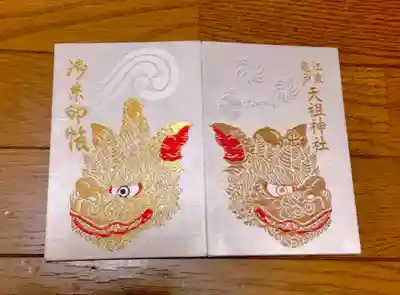 御朱印帳
江東
亀戸
天祖神社